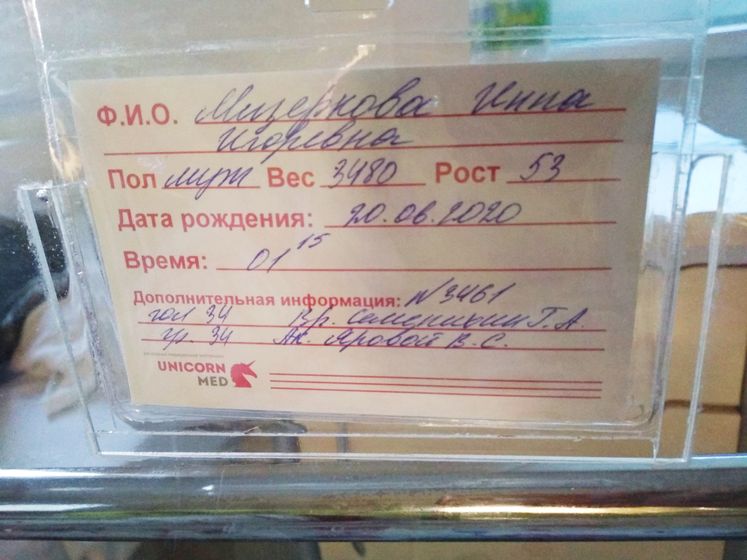 Ф.И.О. Мизеркова Инна
Игоревна
Пол муж Вес 3480 Рост 53
Дата рождения: 20.06.2020
Время: 01 15
Дополнительная информация: N 3461
гол 34 Вр. Г.А.
гр. 34 Ак. Яровой В.С.
UNICORN
MED